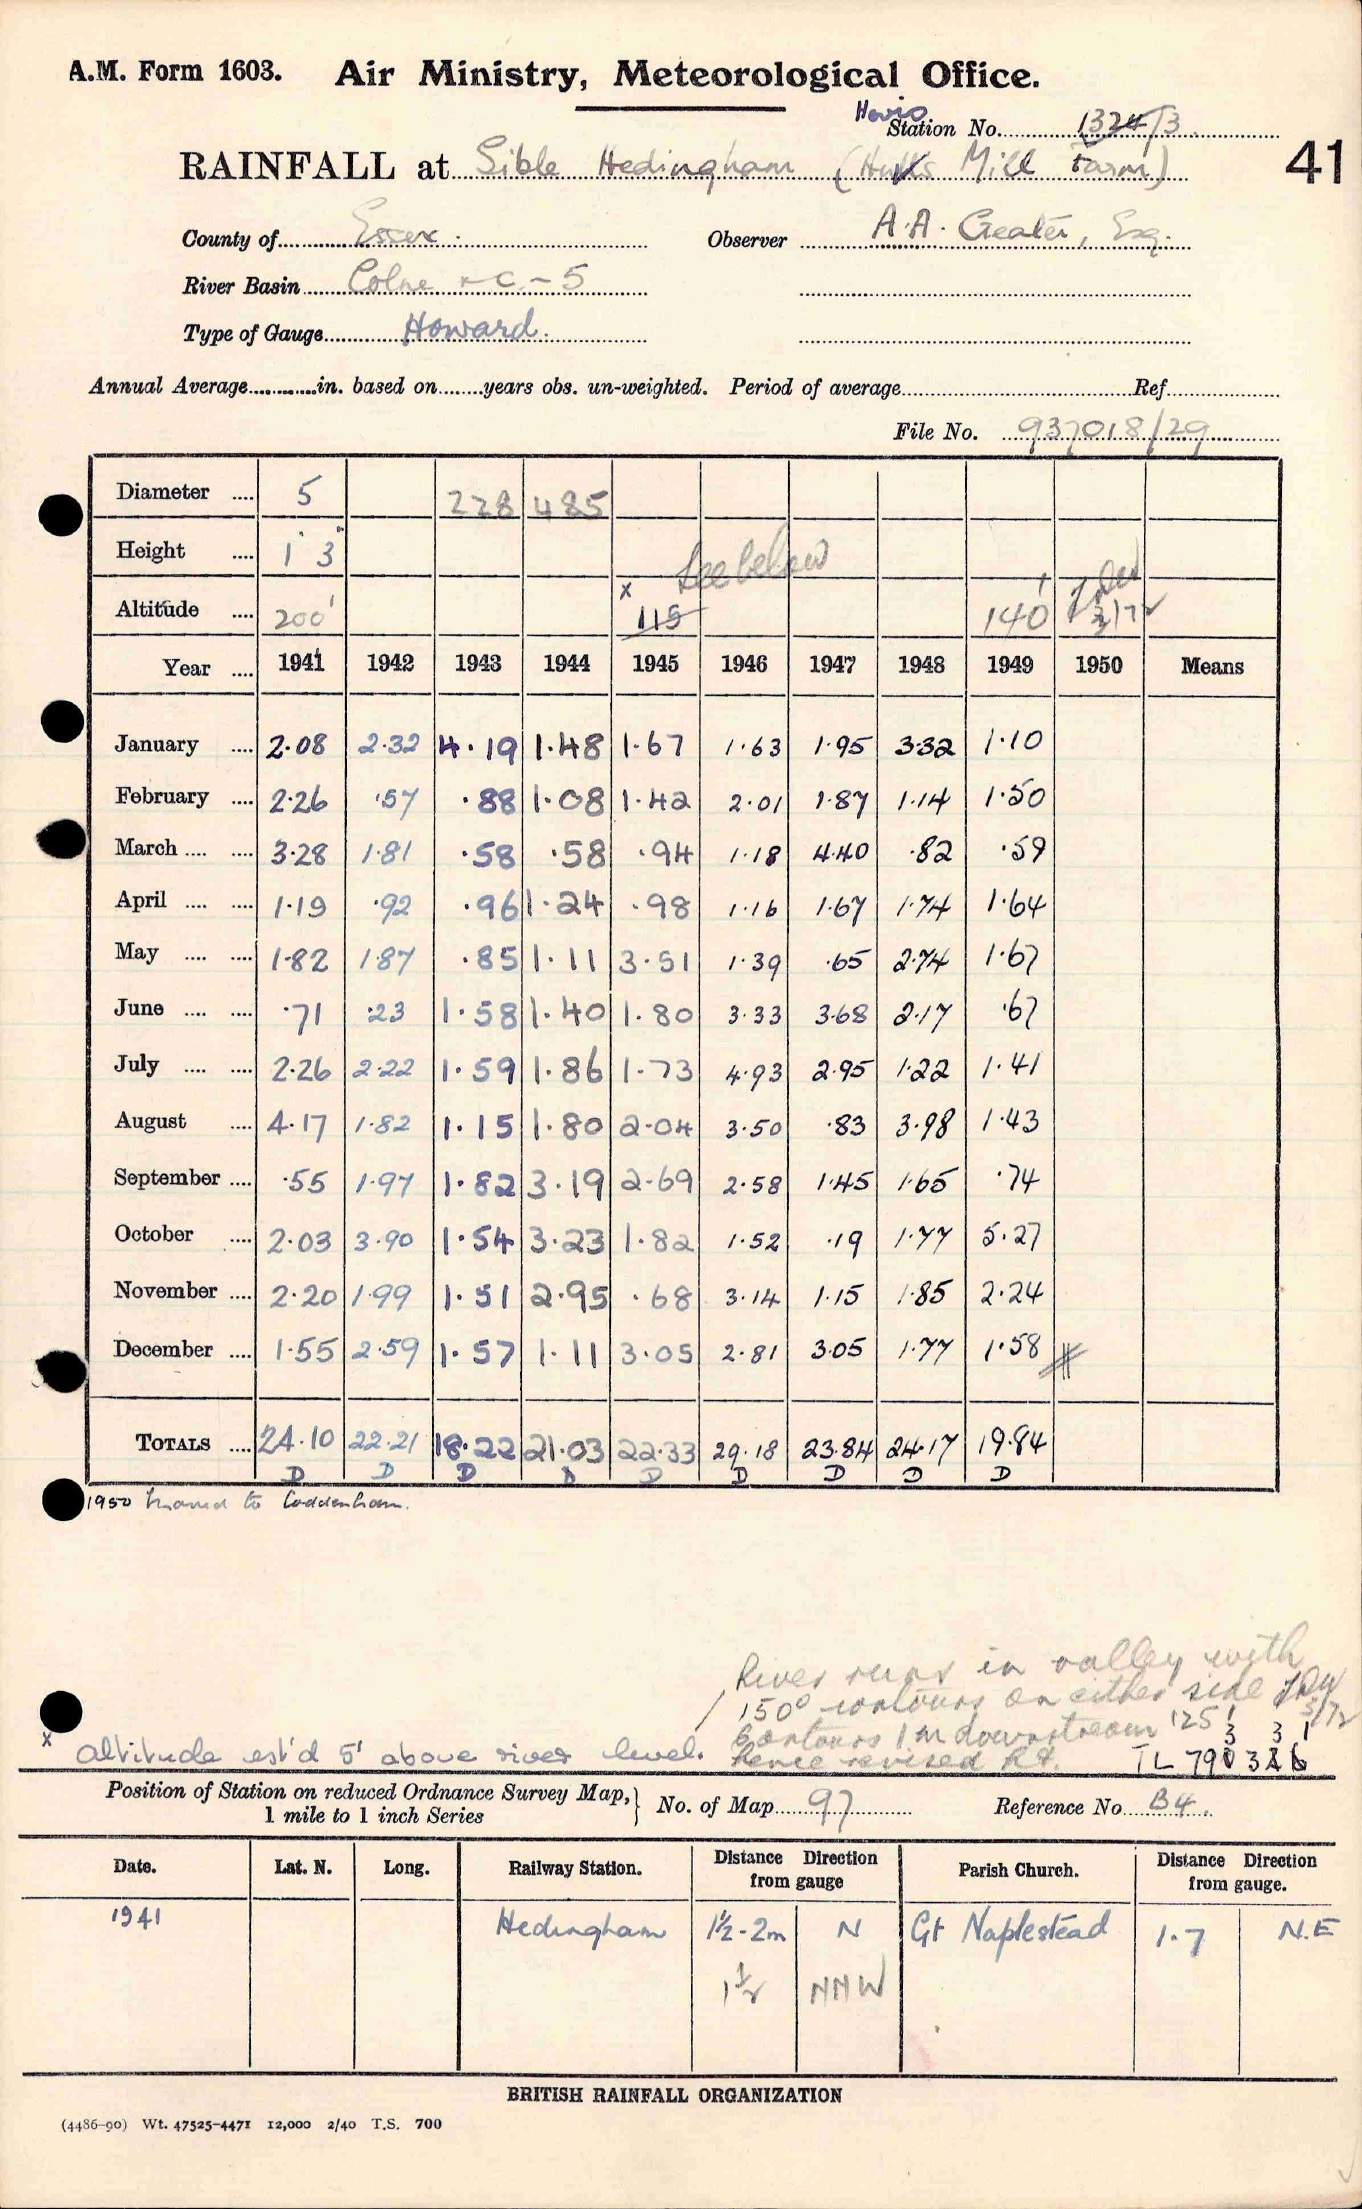 A.M. Form 1603. Air Ministry, Meteorological Office.
Hovis
Station No. 1324/3
41
RAINFALL at Sible Hedingham ( Mill Farm)
County of Essex. Observer A.A. Esq.
River Basin Colne + C-5
Type of Gauge Howard.
Annual Average in. based on years obs. un-weighted. Period of average Ref.
File No. 937018/29
Diameter .... 5 228 485
Height .... 1' 3"
See below
Altitude .... 200' x 115 140' 3/72
Year .... 1941 1942 1943 1944 1945 1946 1947 1948 1949 1950 Means
January .... 2.08 2.32 4.19 1.48 1.67 1.63 1.95 3.32 1.10
February .... 2.26 .57 .88 1.08 1.42 2.01 1.87 1.14 1.50
March .... .... 3.28 1.81 .58 .58 .94 1.18 4.40 .82 .59
April .... .... 1.19 .92 .96 1.24 .98 1.16 1.67 1.74 1.64
May .... .... 1.82 1.87 .85 1.11 3.51 1.39 .65 2.74 1.67
June .... .... .71 .23 1.58 1.40 1.80 3.33 3.68 2.17 .67
July .... .... 2.26 2.22 1.59 1.86 1.73 4.93 2.95 1.22 1.41
August .... 4.17 1.82 1.15 1.80 2.04 3.50 .83 3.98 1.43
September .... .55 1.97 1.82 3.19 2.69 2.58 1.45 1.65 .74
October .... 2.03 3.90 1.54 3.23 1.82 1.52 .19 1.77 5.27
November .... 2.20 1.99 1.51 2.95 .68 3.14 1.15 1.85 2.24
December .... 1.55 2.59 1.57 1.11 3.05 2.81 3.05 1.77 1.58
TOTALS .... 24.10 22.21 18.22 21.03 22.33 29.18 23.84 24.17 19.84
D D D D D D D D D
1950 moved to Coddenham.
River runs in valley with
150' contours on either side
3/72
Contours 1m downstream 125'
hence revised Ht.
3 3 1
x altitude est'd 5' above river level.
TL 790 326
Position of Station on reduced Ordnance Survey Map,
1 mile to 1 inch Series
No. of Map 97 Reference No. B4.
Date. Lat. N. Long. Railway Station. Distance Direction from gauge Parish Church. Distance Direction from gauge.
1941 Hedingham 1½-2m N Gt Naplestead 1.7 N.E
1½ NNW
BRITISH RAINFALL ORGANIZATION
(4486-90) Wt. 47525-4471 12,000 2/40 T.S. 700